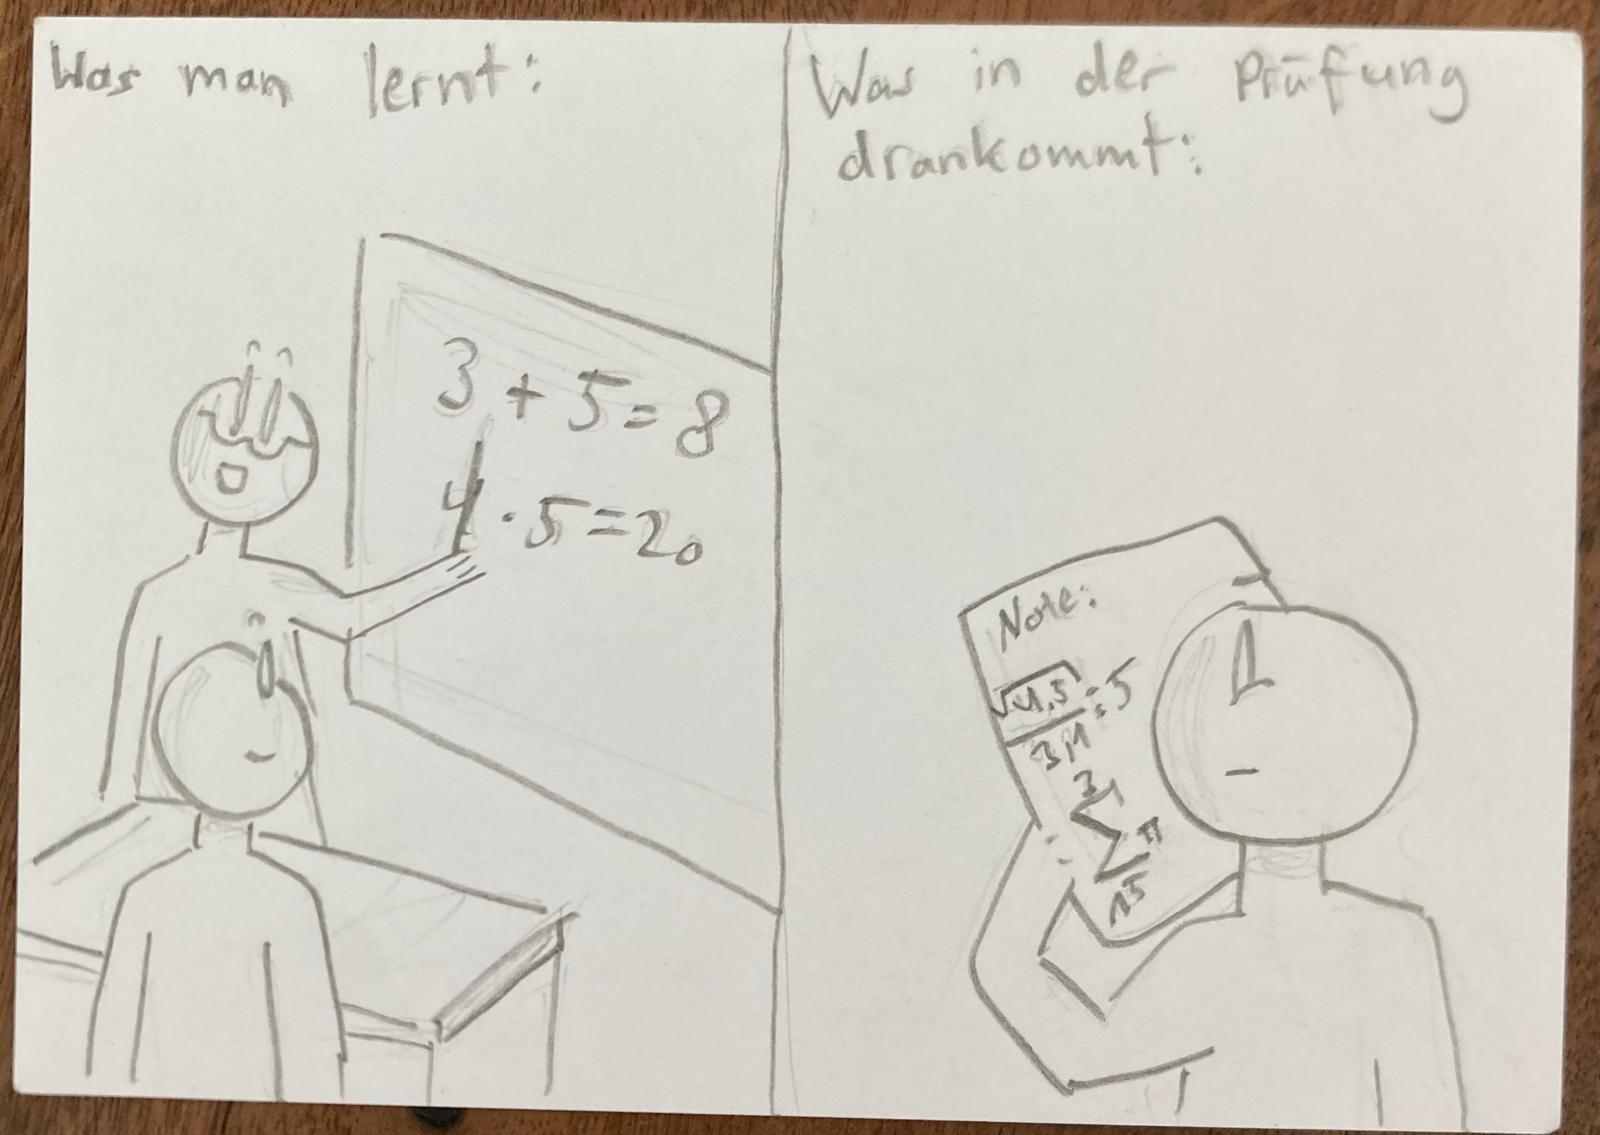 Was man lernt:
3 + 5 = 8
4 · 5 = 20
Was in der Prüfung
drankommt:
Note:
√4,5 : 5
3
∑ π
15